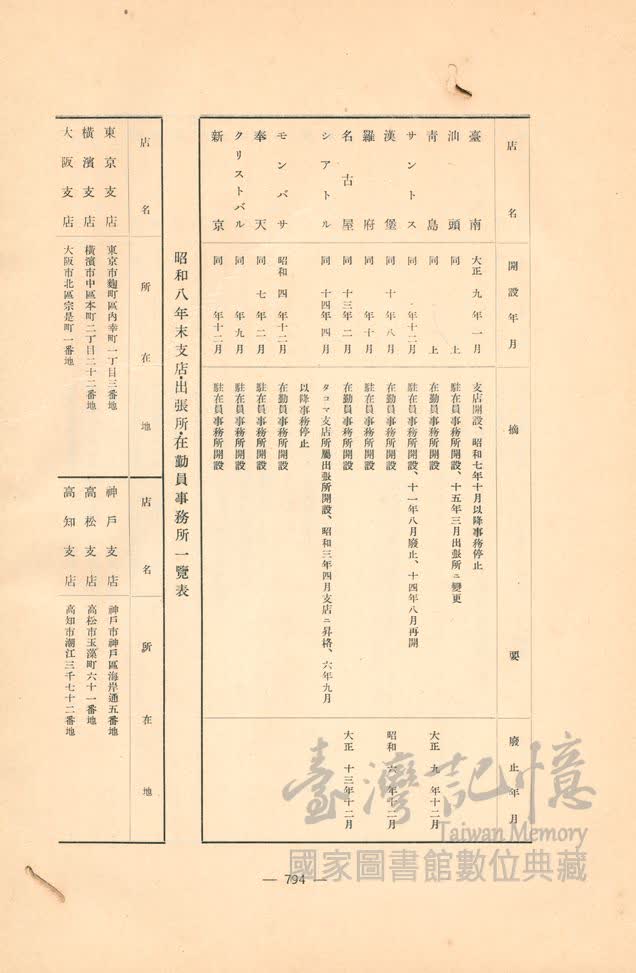 店名 開設年月 摘要 廢止年月
臺南 大正九年一月 支店開設、昭和七年十月以降事務停止
汕頭 同上 駐在員事務所開設、十五年三月出張所ニ變更
青島 同上 駐在員事務所開設 大正九年十二月
サントス 同年十二月 駐在員事務所開設、十一年八月廢止、十四年八月再開
漢堡 同十年八月 駐在員事務所開設 昭和六年十二月
羅府 同年十月 駐在員事務所開設
名古屋 同十三年二月 在勤員事務所開設 大正十三年十二月
シアトル 同十四年四月 タコマ支店所屬出張所開設、昭和三年四月支店ニ昇格、六年九月
以降事務停止
モンバサ 昭和四年十二月 在勤員事務所開設
奉天 同七年二月 駐在員事務所開設
クリストバル 同年九月 駐在員事務所開設
新京 同年十二月 駐在員事務所開設
昭和八年末支店・出張所・在勤員事務所一覽表
店名 所在地
東京支店 東京市麴町區內幸町一丁目三番地
橫濱支店 橫濱市中區本町二丁目二十二番地
大阪支店 大阪市北區宗是町一番地
店名 所在地
神戶支店 神戶市神戶區海岸通五番地
高松支店 高松市玉藻町六十一番地
高知支店 高知市潮江三千七十二番地
— 794 —
臺灣記憶
Taiwan Memory
國家圖書館數位典藏